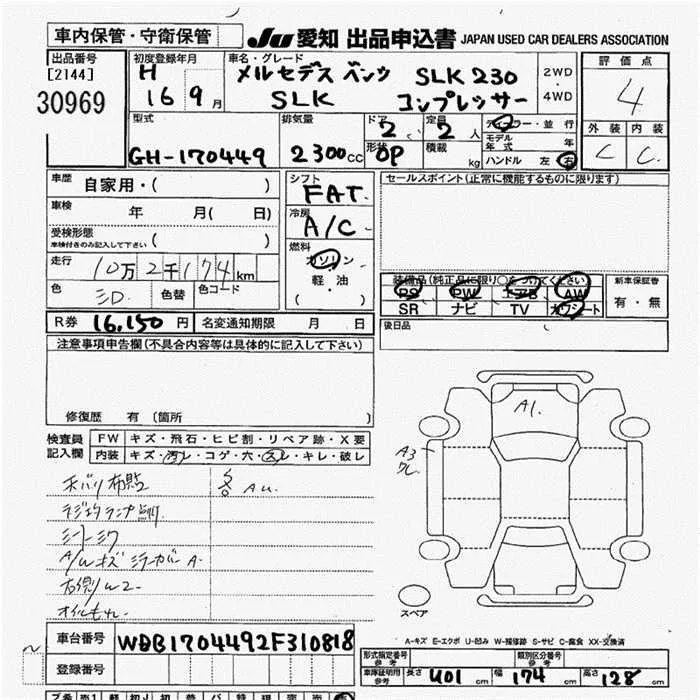 車内保管・守衛保管
JU 愛知 出品申込書 JAPAN USED CAR DEALERS ASSOCIATION
出品番号
[2144]
30969
初度登録年月
H 16 9 月
車名・グレード
メルセデス ベンツ SLK 230
SLK コンプレッサー
2WD
・
4WD
評価点
4
外装 内装
C C
型式
GH-170449
排気量
2300 cc
ドア
2
形状
OP
定員
2 人
積載
kg
ディーラー・並行
モデル年式 年
ハンドル 左 右
車歴
自家用・( )
車検
年 月( 日)
受検形態
車検付きのみ記入して下さい ( )
走行
10万2千174 km
色
色替 色コード
シフト
FAT
冷房
A/C
燃料
ガソリン
軽・油
( )
セールスポイント(正常に機能するものに限ります)
装備品(純正品に限り○をつけてください)
PS PW エアB AW
SR ナビ TV カワシート
新車保証書
有・無
R券 16,150 円 名変通知期限 月 日
後日品
注意事項申告欄(不具合内容等は具体的に記入して下さい)
修復歴 有(箇所 )
検査員
記入欄
FW キズ・飛石・ヒビ割・リペア跡・X要
内装 キズ・汚レ・コゲ・穴・スレ・キレ・破レ
A1.
A3
スペア
A-キズ E-エクボ U-凹み W-補修跡 S-サビ C-腐食 XX-交換済
車台番号 WDB1704492F310818
登録番号
型式指定番号
参考
類別区分番号
参考
車庫証明用
参考
長さ 401 cm 幅 174 cm 高さ 128 cm